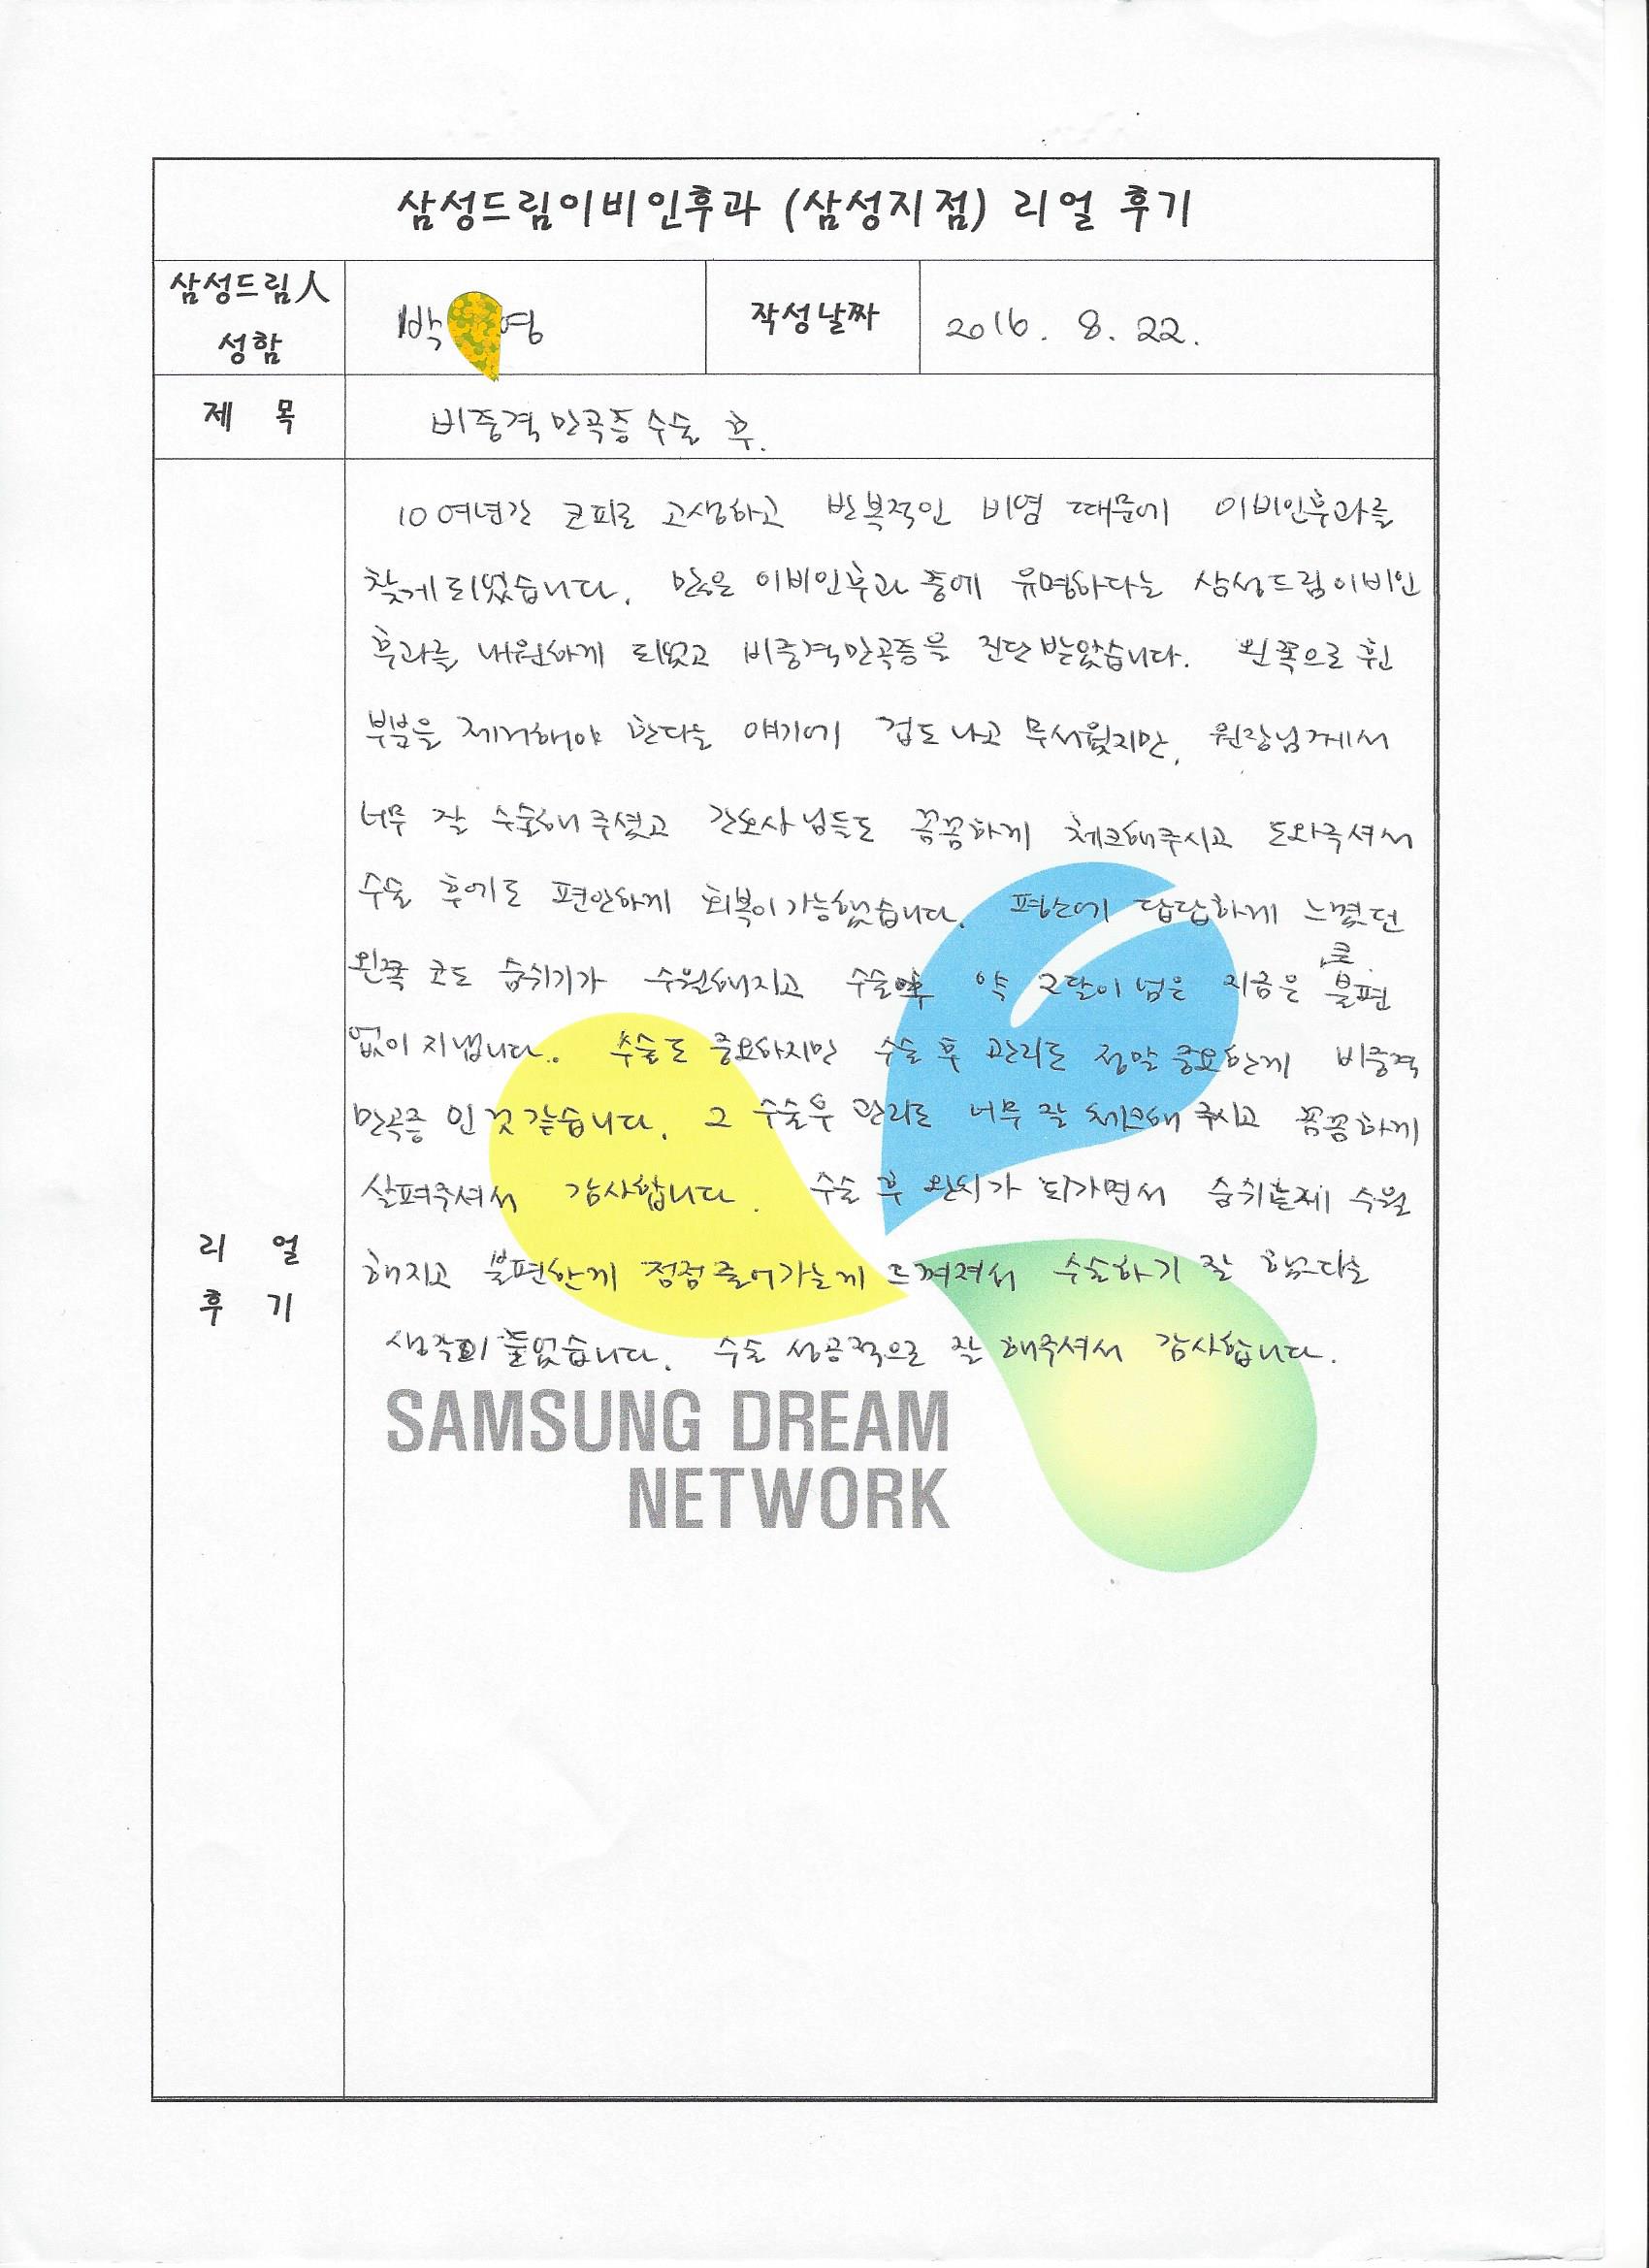 삼성드림이비인후과 (삼성지점) 리얼 후기
삼성드림人
성함
박 영
작성날짜
2016. 8. 22.
제 목
비중격만곡증수술 후.
리 얼
후 기
10여년간 코피로 고생하고 반복적인 비염 때문에 이비인후과를
찾게되었습니다. 많은 이비인후과 중에 유명하다는 삼성드림이비인
후과를 내원하게 되었고 비중격만곡증을 진단받았습니다. 왼쪽으로 휜
부분을 제거해야 한다는 얘기에 겁도나고 무서웠지만, 원장님께서
너무 잘 수술해주셨고 간호사님들도 꼼꼼하게 체크해주시고 도와주셔서
수술 후에도 편안하게 회복이가능했습니다. 평소에 답답하게 느꼈던
왼쪽 코도 숨쉬기가 수월해지고 수술후 약 2달이넘은 지금은 큰 불편
없이지냅니다.. 수술도 중요하지만 수술 후 관리도 정말 중요한게 비중격
만곡증 인것같습니다. 그 수술후 관리도 너무 잘 체크해 주시고 꼼꼼하게
살펴주셔서 감사합니다. 수술 후 완치가 되가면서 수월
해지고 불편한게 점점줄어가는게 느껴져서 수술하기 잘 했다는
생각이 들었습니다. 수술 성공적으로 잘 해주셔서 감사합니다.
SAMSUNG DREAM
NETWORK